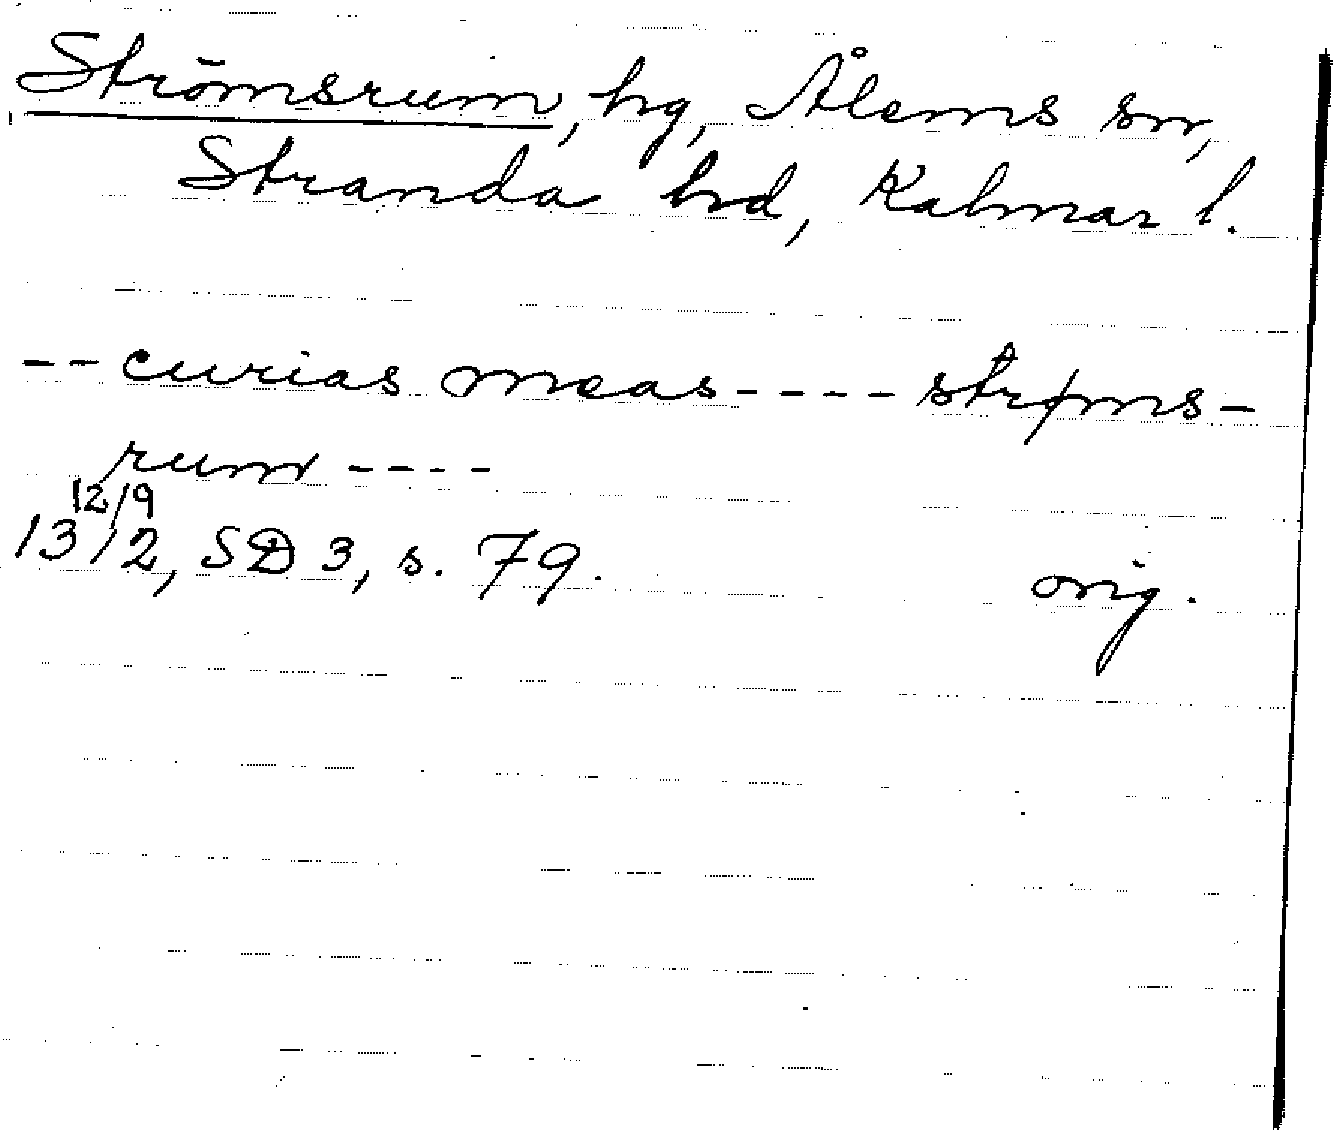 Strömsrum, hg, Ålems sn,
Stranda hd, Kalmar l.
-- curias meas ---- strøms-
rum ----
12/9
13/2, SD 3, s. 79. orig.